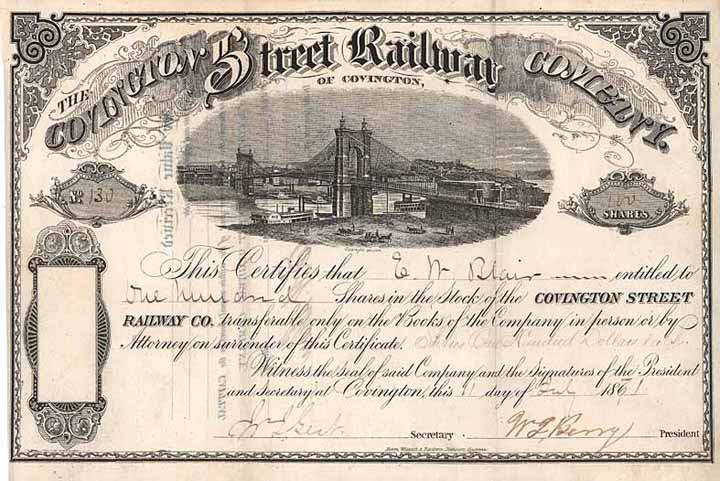 THE COVINGTON Street Railway COMPANY.
OF COVINGTON,
No. 130
100 SHARES.
This Certifies that E W Blair entitled to
One Hundred Shares in the Stock of the COVINGTON STREET
RAILWAY CO. transferable only on the Books of the Company in person or by
Attorney on surrender of this Certificate. One Hundred Dollars each.
Witness the seal of said Company and the Signatures of the President
and Secretary at Covington, this 11 day of July 1861
Secretary W L Berry President